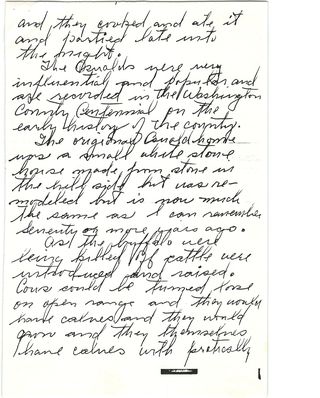 and they cooked and ate it
and partied late into
the night.
The Oswalds were very
influential and popular and
are recorded in the Washington
County Centennial on the
early history of the county.
The original Oswald home
was a small white stone
house made from stone in
the hill side but was re-
modeled but is now much
the same as I can remember
seventy or more years ago.
As the buffalo were
being killed off cattle were
introduced and raised.
Cows could be turned lose
on open range and they would
have calves and they would
grow and they themselves
have calves with practically